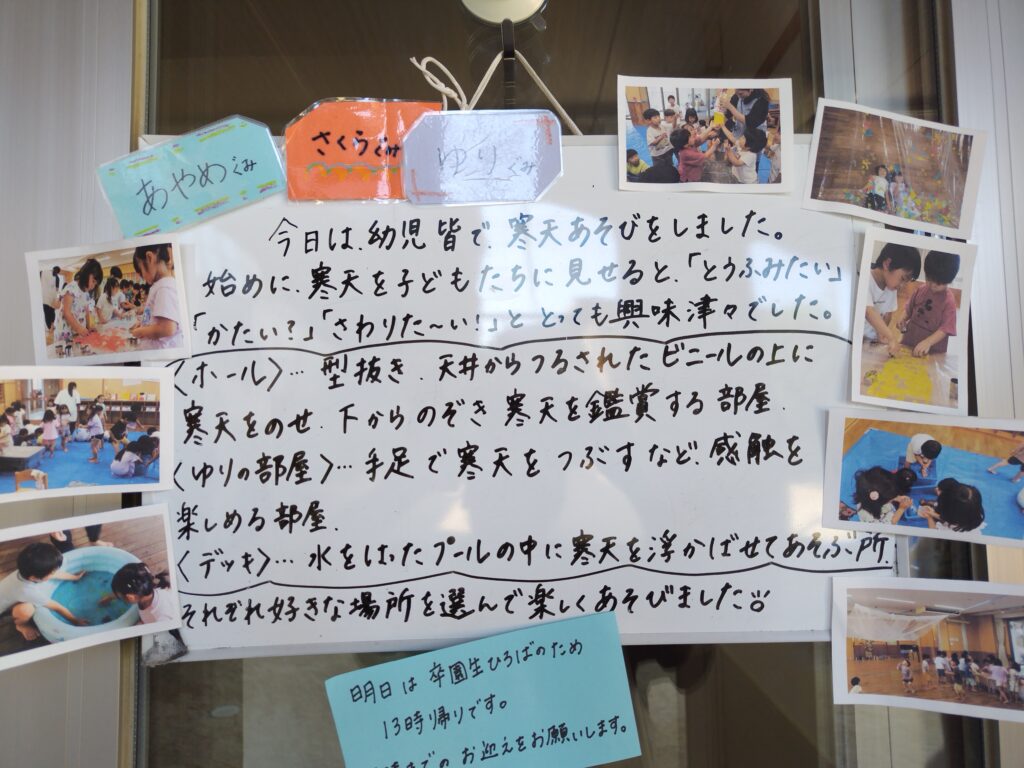 あやめぐみ
さくらぐみ
ゆりぐみ
今日は、幼児皆で、寒天あそびをしました。
始めに、寒天を子どもたちに見せると、「とうふみたい」
「かたい?」「さわりた~い!」ととっても興味津々でした。
〈ホール〉… 型抜き、天井からつるされたビニールの上に
寒天をのせ、下からのぞき寒天を鑑賞する部屋.
〈ゆりの部屋〉… 手足で寒天をつぶすなど、感触を
楽しめる部屋.
〈デッキ〉… 水をはったプールの中に寒天を浮かばせてあそぶ所.
それぞれ好きな場所を選んで楽しくあそびました
明日は卒園生ひろばのため
13時帰りです。
までのお迎えをお願いします。